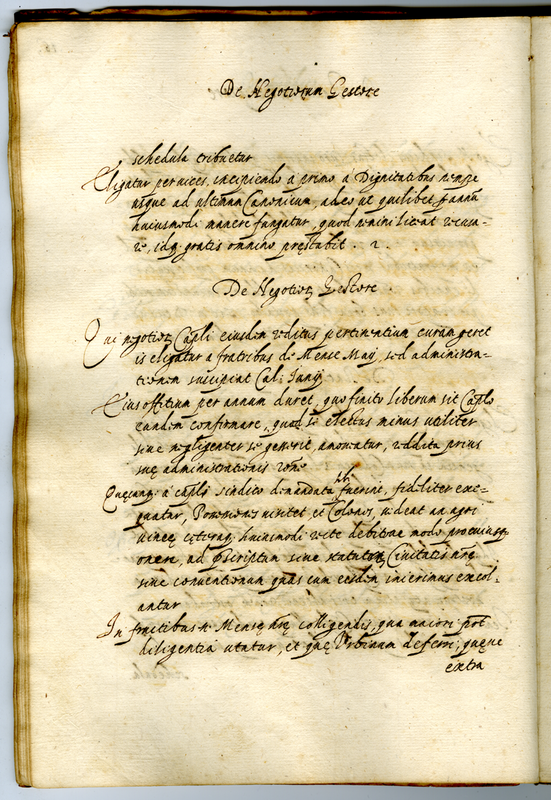 De Negotiorum Gestore
schedula tribuetur
Eligatur per vices, incipiendo a primo a Dignitatibus nempe
usque ad ultimum Canonicum, adeo ut quilibet p annū
huiusmodi munere fungatur, quod nemini liceat recusa-
re, idq gratis omnino pręstabit. 2.
De Negotioꝝ Gestore
Qui negotioꝝ Capli eiusdem reditus pertinentium curam geret
is eligatur a fratribus de Mense Maij, sed administra-
tionem suscipiat Cal: Junij
Eius offitium per annum duret, quo finito liberum sit Caplo
eundem confirmare, quod si electus minus utiliter
sive negligenter se gesserit, amoveatur, reddita prius
suę administrationis
Quęcunq a caplo sindico demandata sibi fuerint, fideliter exe-
quatur, Possessiones visitet, et Colonos, videat an agri
vineę cęteraq huiusmodi recte debitae modo procurasq
onere, ad pscriptum sive statutoꝝ Civitatis nrę
sive conventionum quas cum eisdem inierimus excol-
antur
In fructibus Mensę nrę colligendis, qua maiori pot
diligentia utatur, et quę Urbinum deferri, quęve
extra